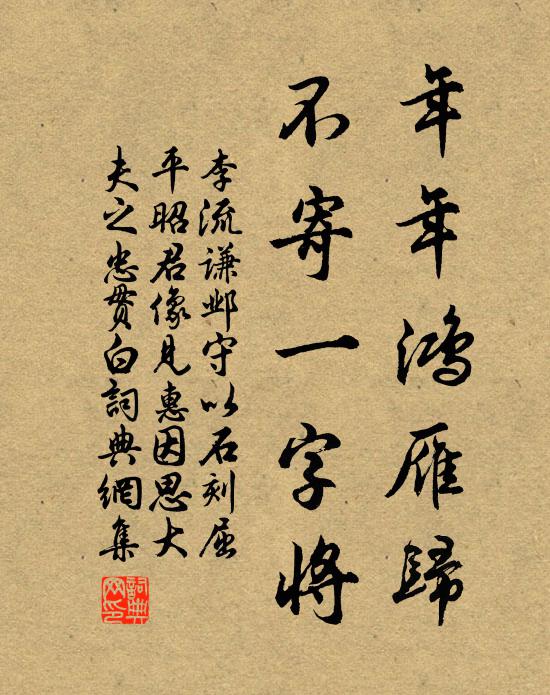 年年鴻雁歸
不寄一字將
李流謙邺守以石刻屈
平昭君像見惠因思大
夫之忠貫白詞典網集
詞典网印